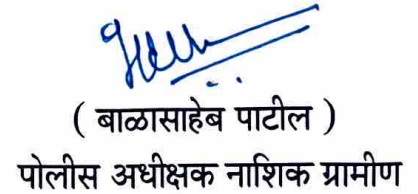 ( बाळासाहेब पाटील )
पोलीस अधीक्षक नाशिक ग्रामीण